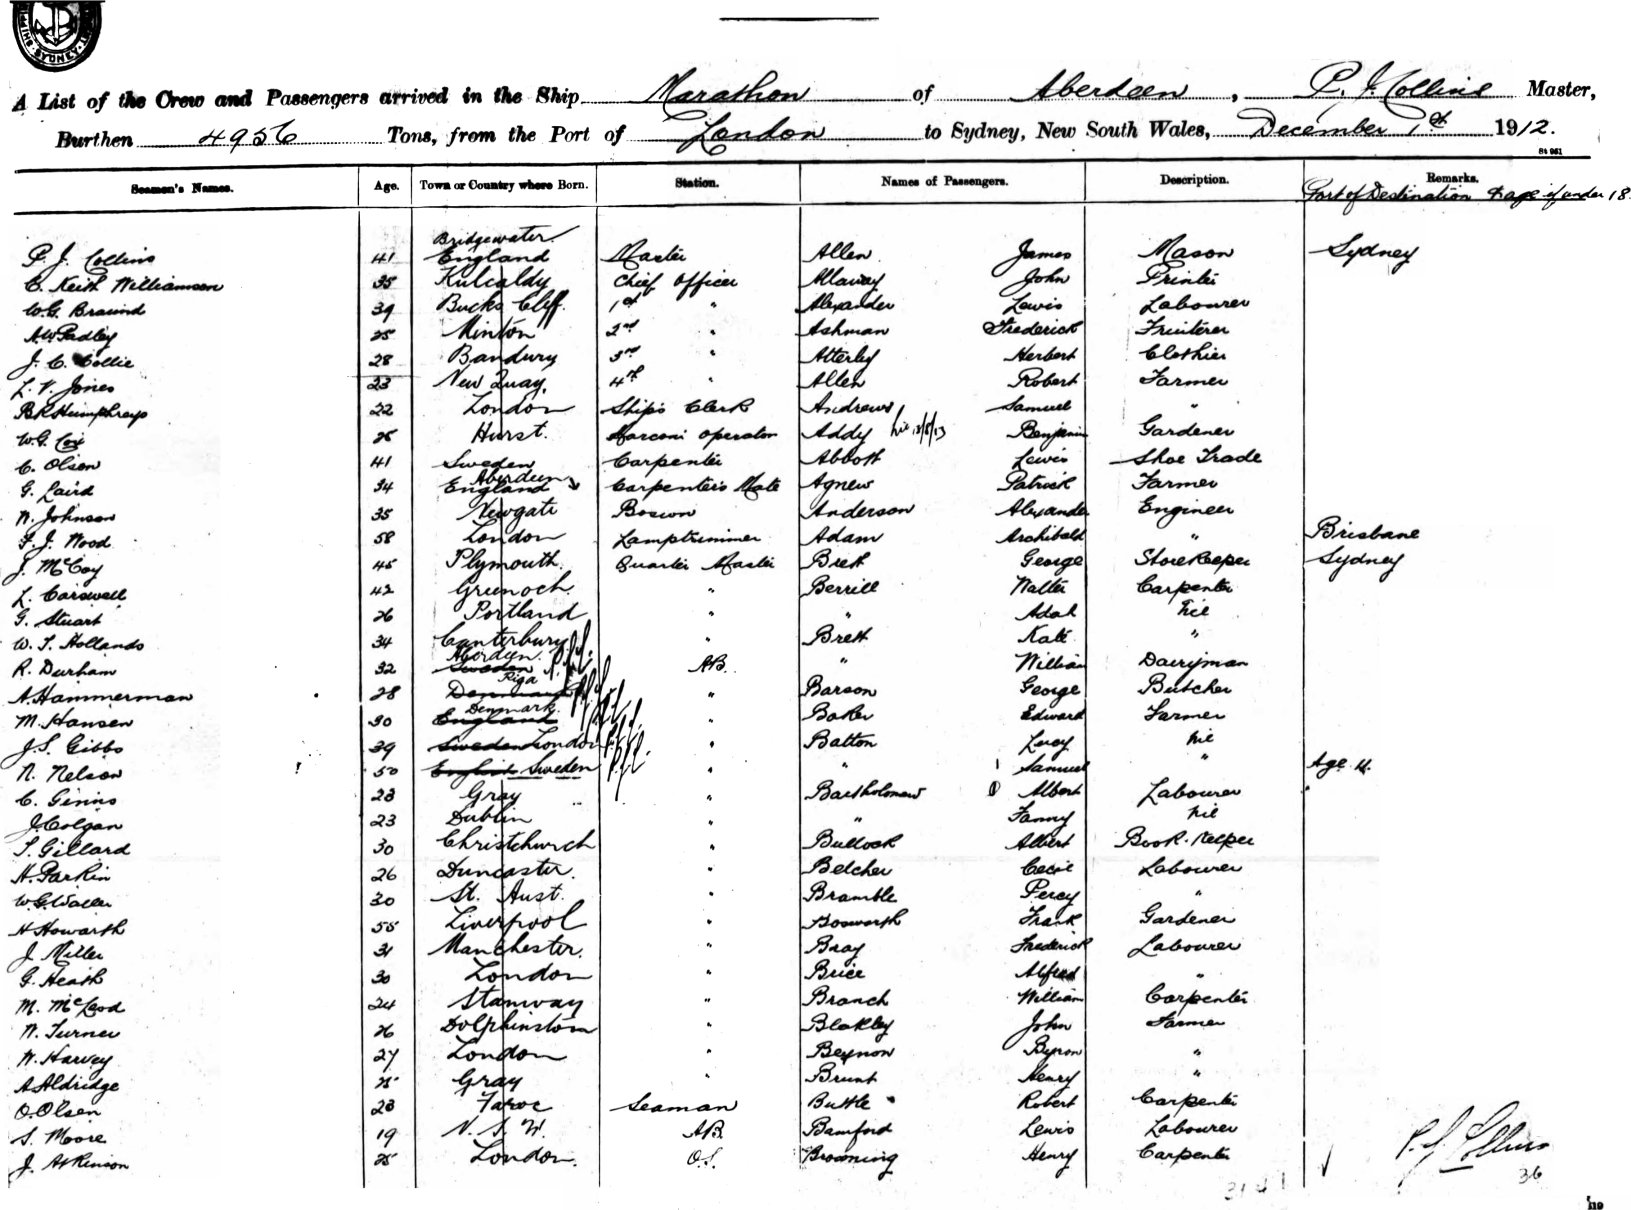 SYDNEY
A List of the Crew and Passengers arrived in the Ship Marathon of Aberdeen, P. J. Collins Master,
Burthen 4956 Tons, from the Port of London to Sydney, New South Wales, December 1st 1912.
St 951
Seamen's Names. Age. Town or Country where Born. Station. Names of Passengers. Description. Remarks.
Port of Destination & age if under 18
Bridgewater
P. J. Collins 41 England Master Allen James Mason Sydney
C. Keith Williamson 35 Kulcaldy Chief Officer Allaway John Printer
W.G. Braund 39 Bucks Cliff. 1st " Alexander Lewis Labourer
A.W. Padley 25 Minton 2nd " Ashman Frederick Fruiterer
J. C. Collie 28 Bandury 3rd " Atterley Herbert Clothier
L. V. Jones 23 New Quay. 4th " Allen Robert Farmer
B.R. Humphreys 22 London Ship's Clerk Andrews Samuel "
W.G. Cox 25 Hurst. Marconi Operator Addy 13/8/13 Benjamin Gardener
C. Olsen 41 Sweden Carpenter Abbott Lewis Shoe Trade
Aberdeen
G. Laird 34 England Carpenter's Mate Agnew Patrick Farmer
N. Johnson 35 Newgate Boswn Anderson Alexander Engineer
F. J. Wood 58 London Lamptrimmer Adam Archibald " Brisbane
J. McCoy 45 Plymouth. Quarter Master Brett George Storekeeper Sydney
L. Carswell 42 Greenoch. " Berrill Walter Carpenter
G. Stuart 26 Portland " " Adah Nil
W. T. Hollands 34 Canterbury " Brett Kate "
Aberdeen.
R. Durham 32 Sweden A.B. " William Dairyman
Riga
A. Hammerman 28 Denmark " Barson George Butcher
Denmark.
M. Hansen 30 England " Baker Edward Farmer
J.S. Gibbs 39 Sweden London " Batton Lucy Nil
N. Nelson 50 English Sweden " " Samuel " Age 4.
C. Ginns 23 Gray " Bartholomew Albert Labourer
J. Colgan 23 Dublin " " Fanny Nil
T. Gillard 30 Christchurch " Bullock Albert Book-Keeper
H. Parkin 26 Duncaster. " Belcher Cecil Labourer
W.G. Waller 30 St. Aust. " Bramble Percy "
H Howarth 55 Liverpool " Bosworth Frank Gardener
J. Miller 31 Manchester. " Bray Frederick Labourer
G. Heath 30 London " Brice Alfred "
M. McLeod 24 Stanway " Branch William Carpenter
W. Turner 26 Dolphinstown " Blakley John Farmer
W. Harvey 27 London " Beynon Byron "
A Aldridge 25 Gray " Brunt Henry "
O. Olsen 23 Faroe Seaman Buttle Robert Carpenter
S. Moore 19 N. S. W. A.B. Bamford Lewis Labourer
J. Atkinson 25 London. O.S. Browning Henry Carpenter
P. J. Collins
36